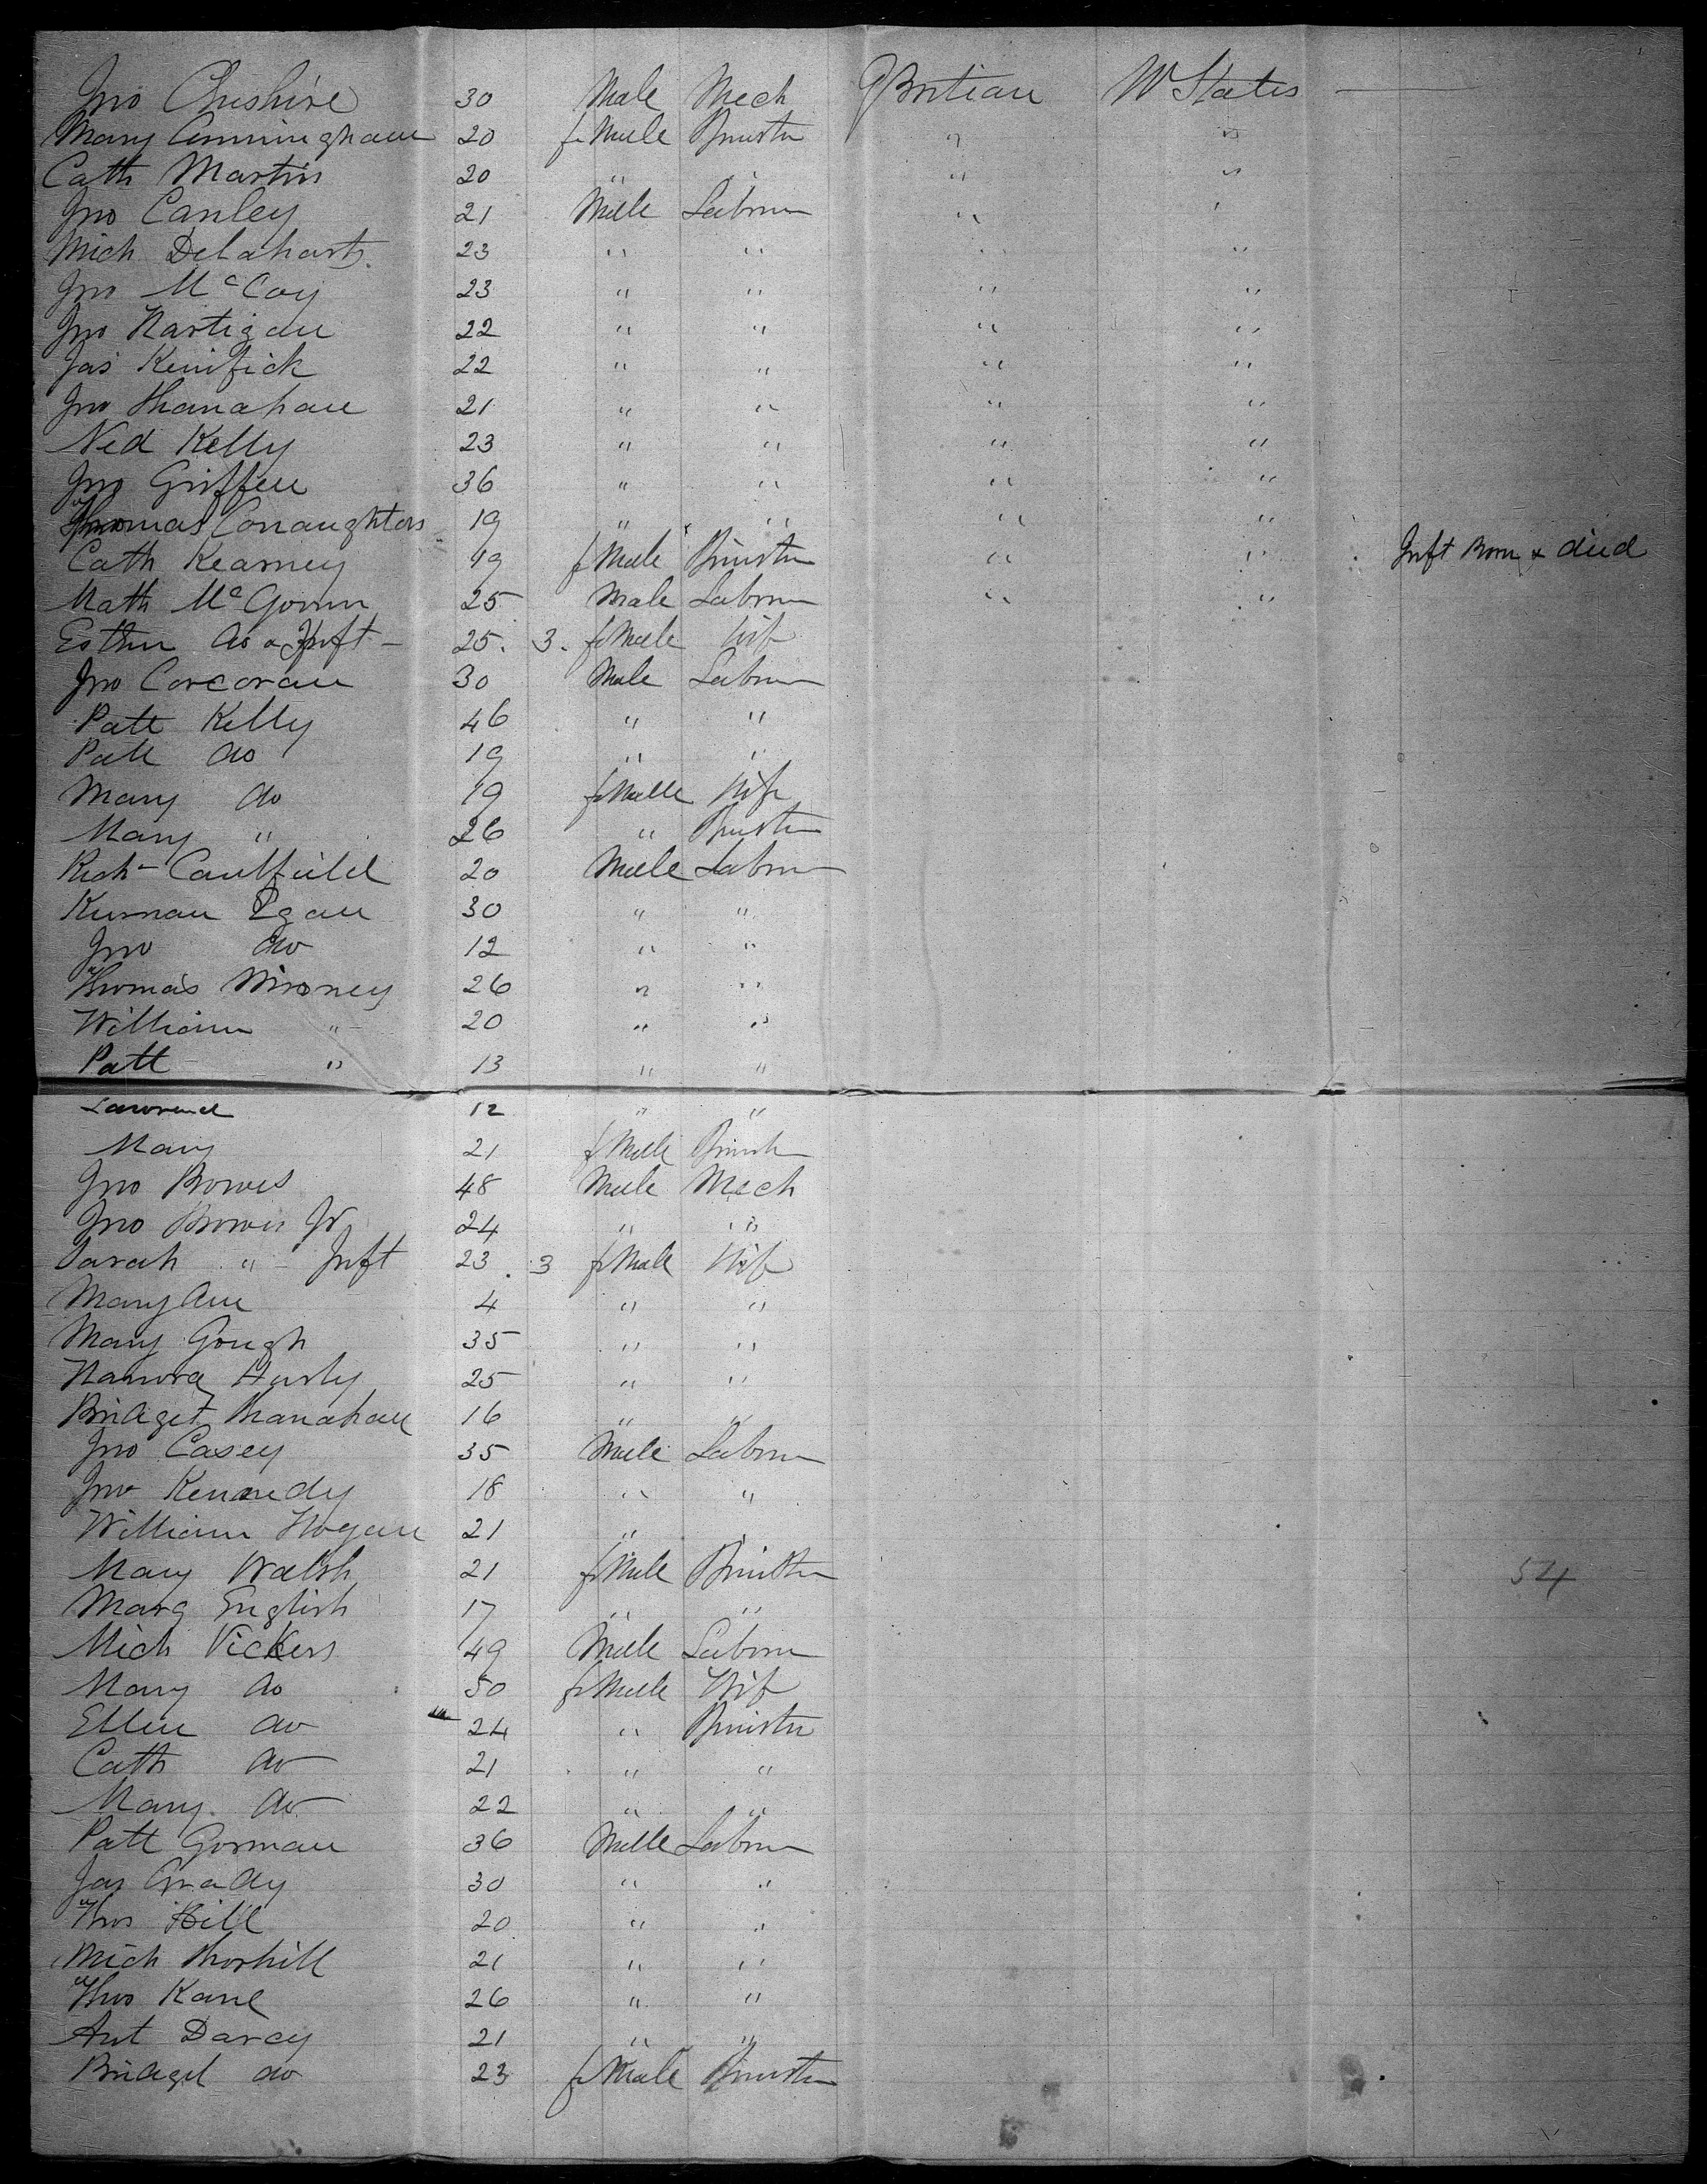 Jno Cheshire 30 Male Mech G Britian U States
Mary Cunningham 20 f Male Spinster " "
Cath Martin 20 " " " "
Jno Canley 21 Male Laborer " "
Mich Delahart 23 " " " "
Jno McCoy 23 " " " "
Jno Hartigan 22 " " " "
Jas Kenifick 22 " " " "
Jno Shanahan 21 " " " "
Ned Kelly 23 " " " "
Jno Griffen 36 " " " "
Thomas Conaughton 19 " " " "
Cath Kearney 19 f Male Spinster " " Inft Born & died
Math McGovrn 25 Male Laborer " "
Esther do & Inft - 25. 3. fe Male Wife
Jno Corcoran 30 Male Laborer
Patt Kelly 46 " "
Patt do 19 " "
Mary do 19 fe Male Wife
Mary " 26 " Spinster
Rich Caulfield 20 Male Laborer
Kurnan Egan 30 " "
Jno do 12 " "
Thomas Mooney 26 " "
William " 20 " "
Patt " 13 " "
Lawrence 12 " "
Mary 21 f Male Spinster
Jno Bowes 48 Male Mech
Jno Bowes Jr 24 " "
Sarah " - Inft 23. 3 f Male Wife
Mary Ann 4 " "
Mary Gough 35 " "
Hanora Hurly 25 " "
Bridget Shanahan 16 " "
Jno Casey 35 Male Laborer
Jno Kennedy 18 " "
William Hogan 21 " "
Mary Walsh 21 f Male Spinster 54
Marg English 17 " "
Mich Vickers 49 Male Laborer
Mary do 50 fe Male Wife
Ellen do 24 " Spinster
Cath do 21 " "
Mary do 22 " "
Patt Gorman 36 Male Laborer
Jas Grady 30 " "
Thos Hill 20 " "
Mich Thorhill 21 " "
Thos Kane 26 " "
Ant Darcy 21 " "
Bridget do 23 fe Male Spinster